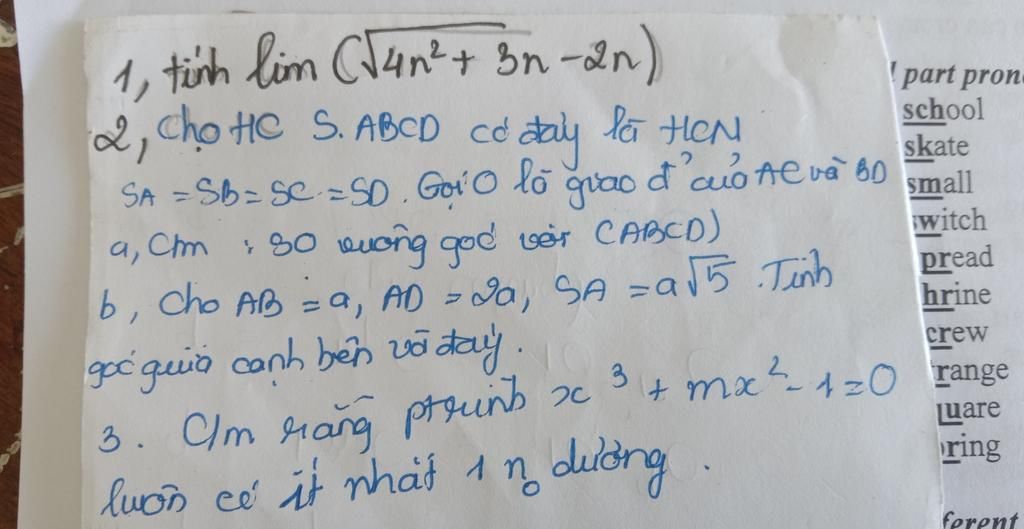 1, tính lim (√4n² + 3n - 2n)
2, Cho HC S.ABCD có đáy là HCN
SA = SB = SC = SD. Gọi O là giao đ' của AC và BD
a, C/m : SO vuông góc với (ABCD)
b, Cho AB = a, AD = 2a, SA = a√5. Tính
góc giữa cạnh bên và đáy.
3. C/m rằng ptrình x³ + mx² - 1 = 0
luôn có ít nhất 1 n₀ dương.
! part pron
school
skate
small
switch
pread
hrine
crew
range
quare
ring
ferent